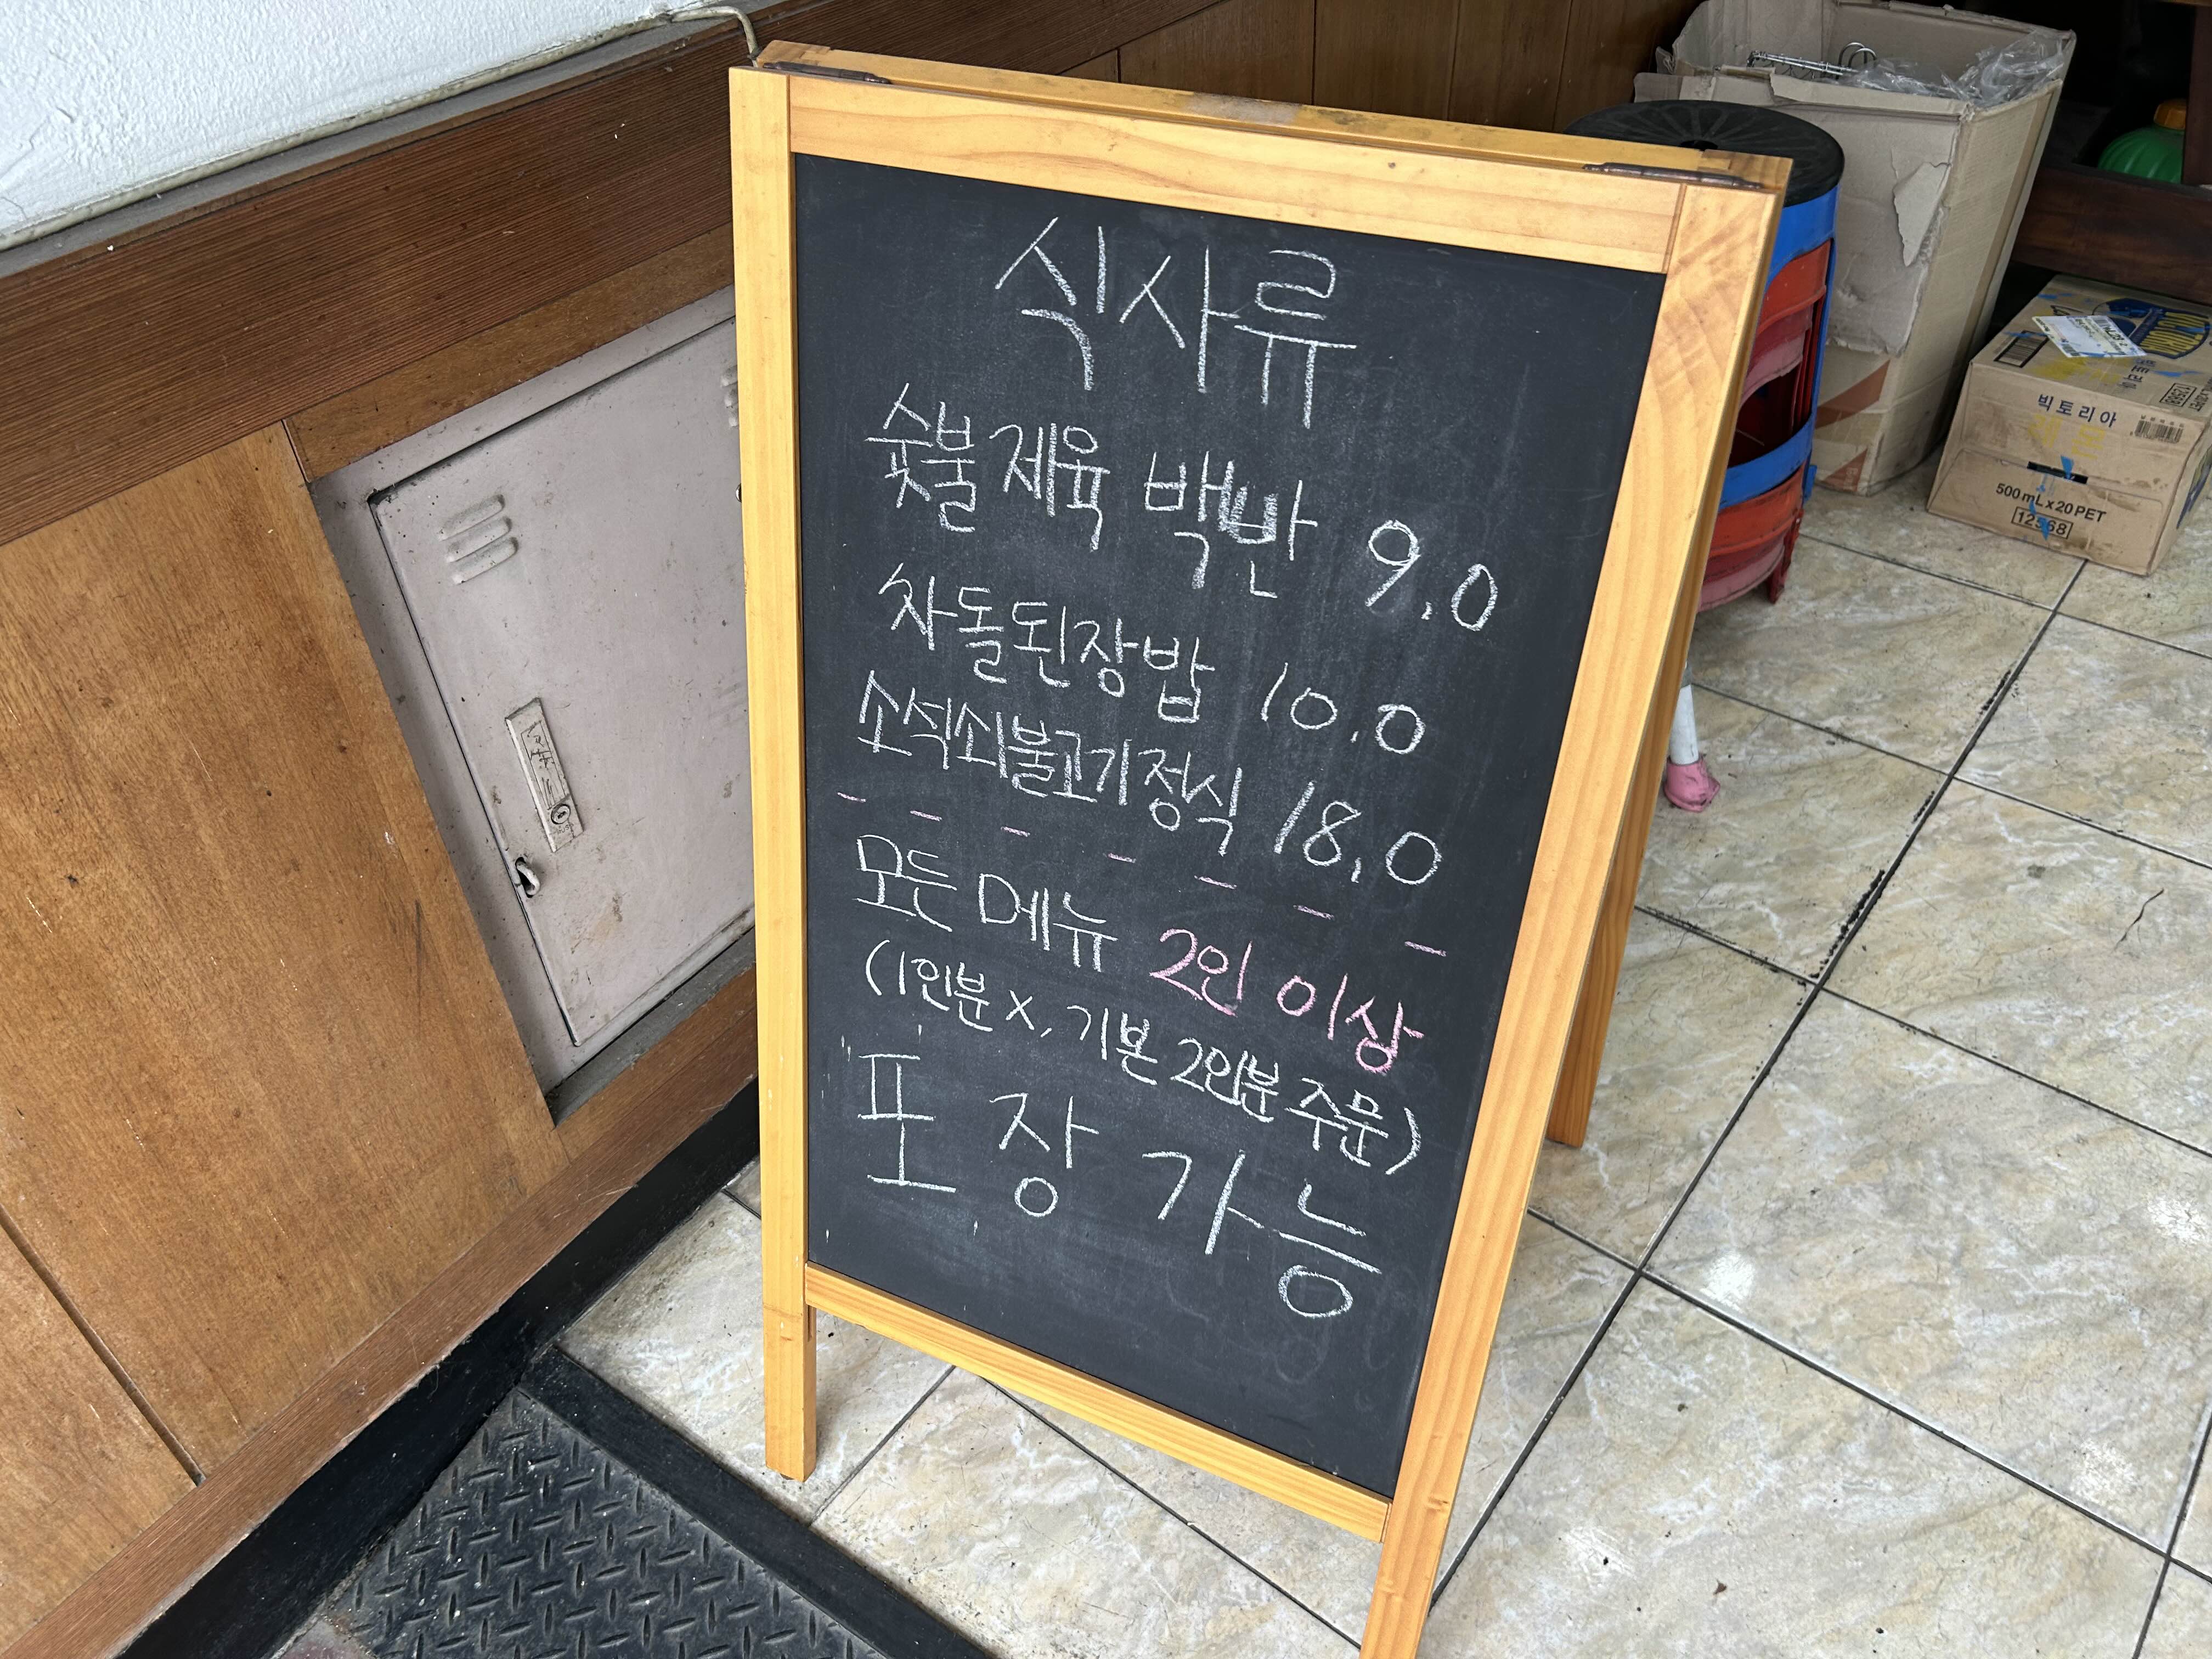 식사류
숯불제육 백반 9.0
차돌된장밥 10.0
소석쇠불고기정식 18.0
모든 메뉴 2인 이상
(1인분 X, 기본 2인분 주문)
포장 가능
빅토리아
500mL x 20PET
12568